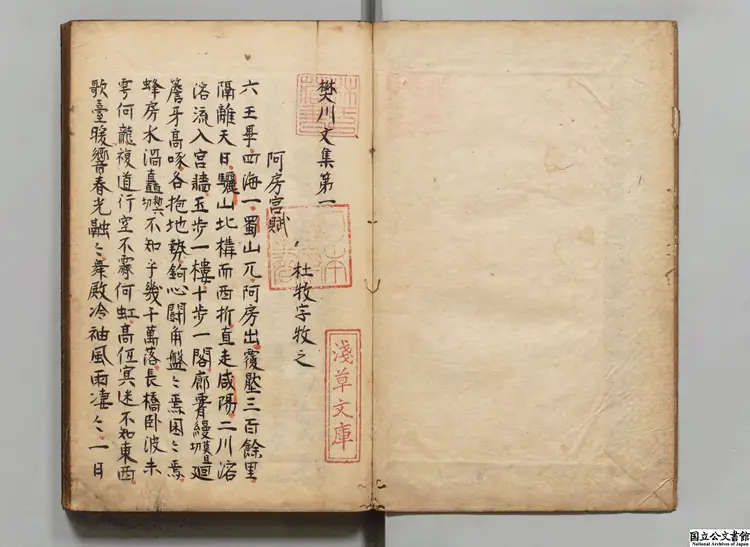 樊川文集第一
杜牧字牧之
阿房宮賦
六王畢四海一蜀山兀阿房出覆壓三百餘里
隔離天日驪山北構而西折直走咸陽二川溶
溶流入宮牆五步一樓十步一閣廊腰縵廻
簷牙高啄各抱地勢鉤心鬪角盤〻焉囷〻焉
蜂房水渦矗不知乎幾千萬落長橋卧波未
雩何龍複道行空不霽何虹高低冥迷不知東西
歌臺暖響春光融〻舞殿冷袖風雨凄〻一日
淺草文庫
国立公文書館
National Archives of Japan